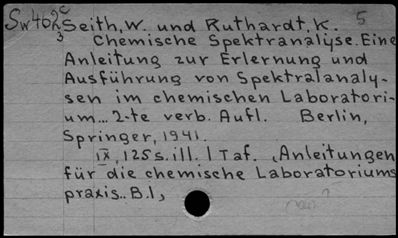 Sw462c Seith, W. und Ruthardt, K. 5
3 Chemische Spektralyse. Eine
Anleitung zur Erlernung und
Ausführung von Spektralanaly-
sen im chemischen Laboratori-
um... 2-te verb. Aufl. Berlin,
Springer, 1941.
IX, 125 s. ill. 1 Taf. (Anleitungen
für die chemische Laboratoriums
praxis.. B.1,)